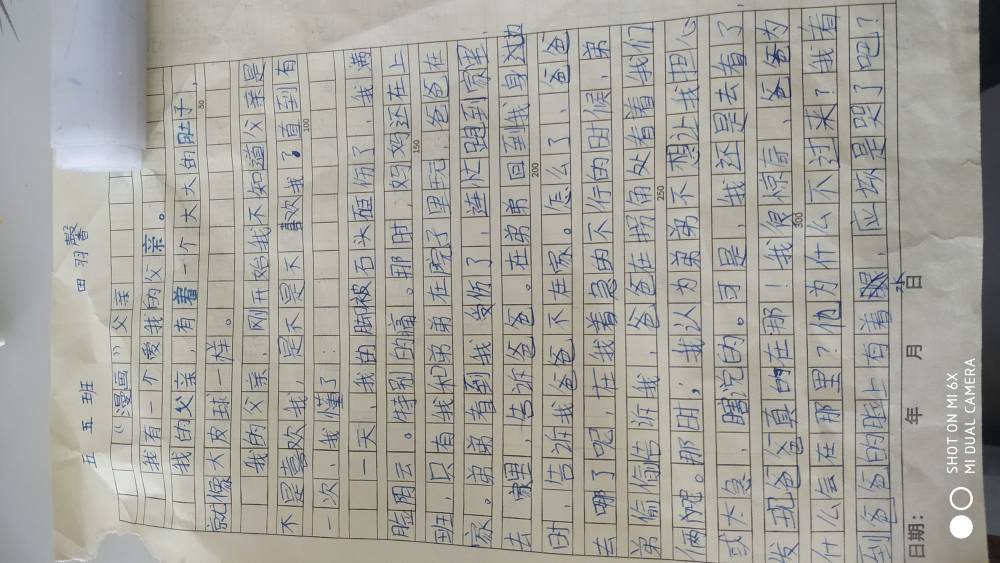 五五班 田羽馨
《"漫画"父亲
我有一个爱我的父亲。
我的父亲,有着一个大大的肚子,
50
就像大皮球一样。
我的父亲,刚开始我不知道父亲是
不是喜欢我,是不是不喜欢我了直到有
100
一次,我懂了
一天,我的脚被石头砸伤了,我满
脸阴云。特别的痛。那时,妈妈还在上
150
班,只有我和弟弟在院子里玩,爸爸在
家。弟弟看到我受伤了,连忙跑到家里
去家里,告诉爸爸。在弟弟回到我身边
200
时,告诉我爸爸不在家。怎么了、爸爸
去哪了呢,在我着急的不行的时候,弟
弟偷偷告诉我,爸爸在拐角处看着我们
250
俩呢。那时,我认为弟弟不想让我担心
或太急,瞎说的。可是,我还是去看了,
发现爸爸真的在那!我很惊奇、爸爸为
300
什么会在那里?他为什么不过来?我看
到爸爸的脸上有着,应该是哭了吧?
日期: 年 月 日
SHOT ON MI 6X
MI DUAL CAMERA